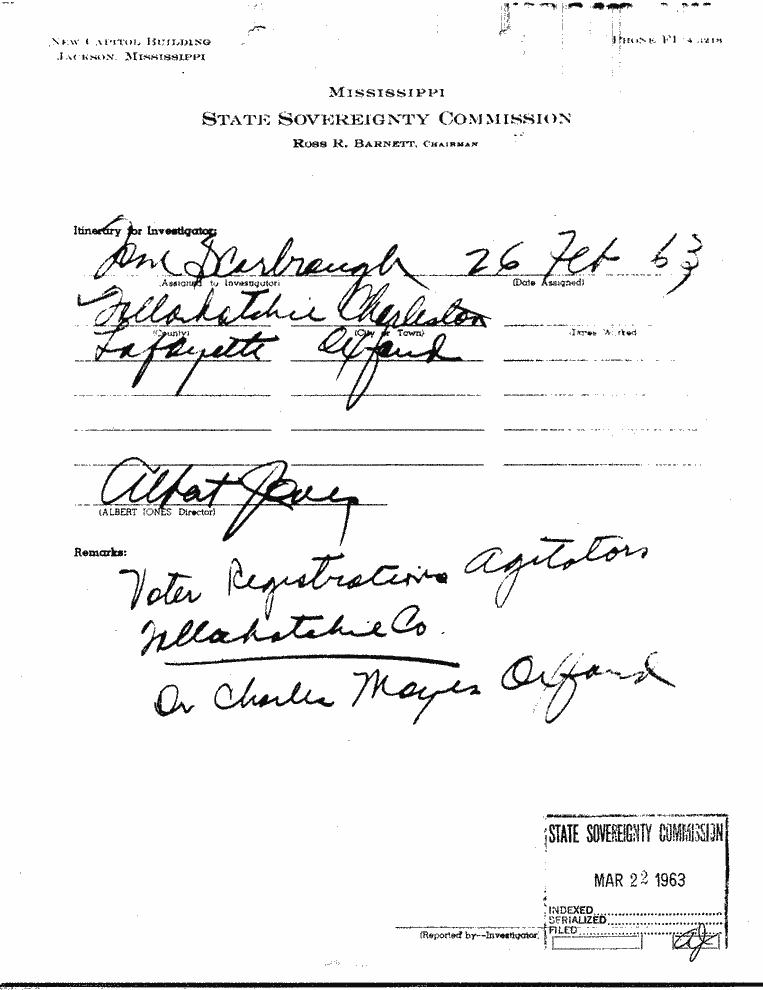 NEW CAPITOL BUILDING
JACKSON, MISSISSIPPI
PHONE FL 4-3218
MISSISSIPPI
STATE SOVEREIGNTY COMMISSION
ROSS R. BARNETT, CHAIRMAN
Itinerary for Investigator:
Tom Scarbrough 26 Feb 63
(Assigned to Investigator) (Date Assigned)
Tallahatchie Charleston
(County) (City or Town) Dates Worked
Lafayette Oxford
Albert Jones
(ALBERT JONES Director)
Remarks:
Voter Registrations Agitators
Tallahatchie Co.
Dr Charles Mayes Oxford
STATE SOVEREIGNTY COMMISSION
MAR 22 1963
INDEXED
SERIALIZED
FILED
(Reported by--Investigator)
aj